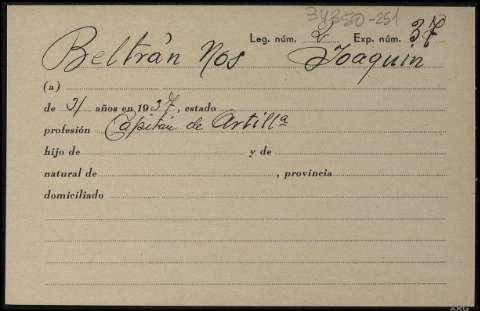 34350-251
Leg. núm. 2 Exp. núm. 37
Beltrán Nos Joaquín
(a)
de 31 años en 1937, estado
profesión Capitán de Artillª
hijo de y de
natural de , provincia
domiciliado
ARG